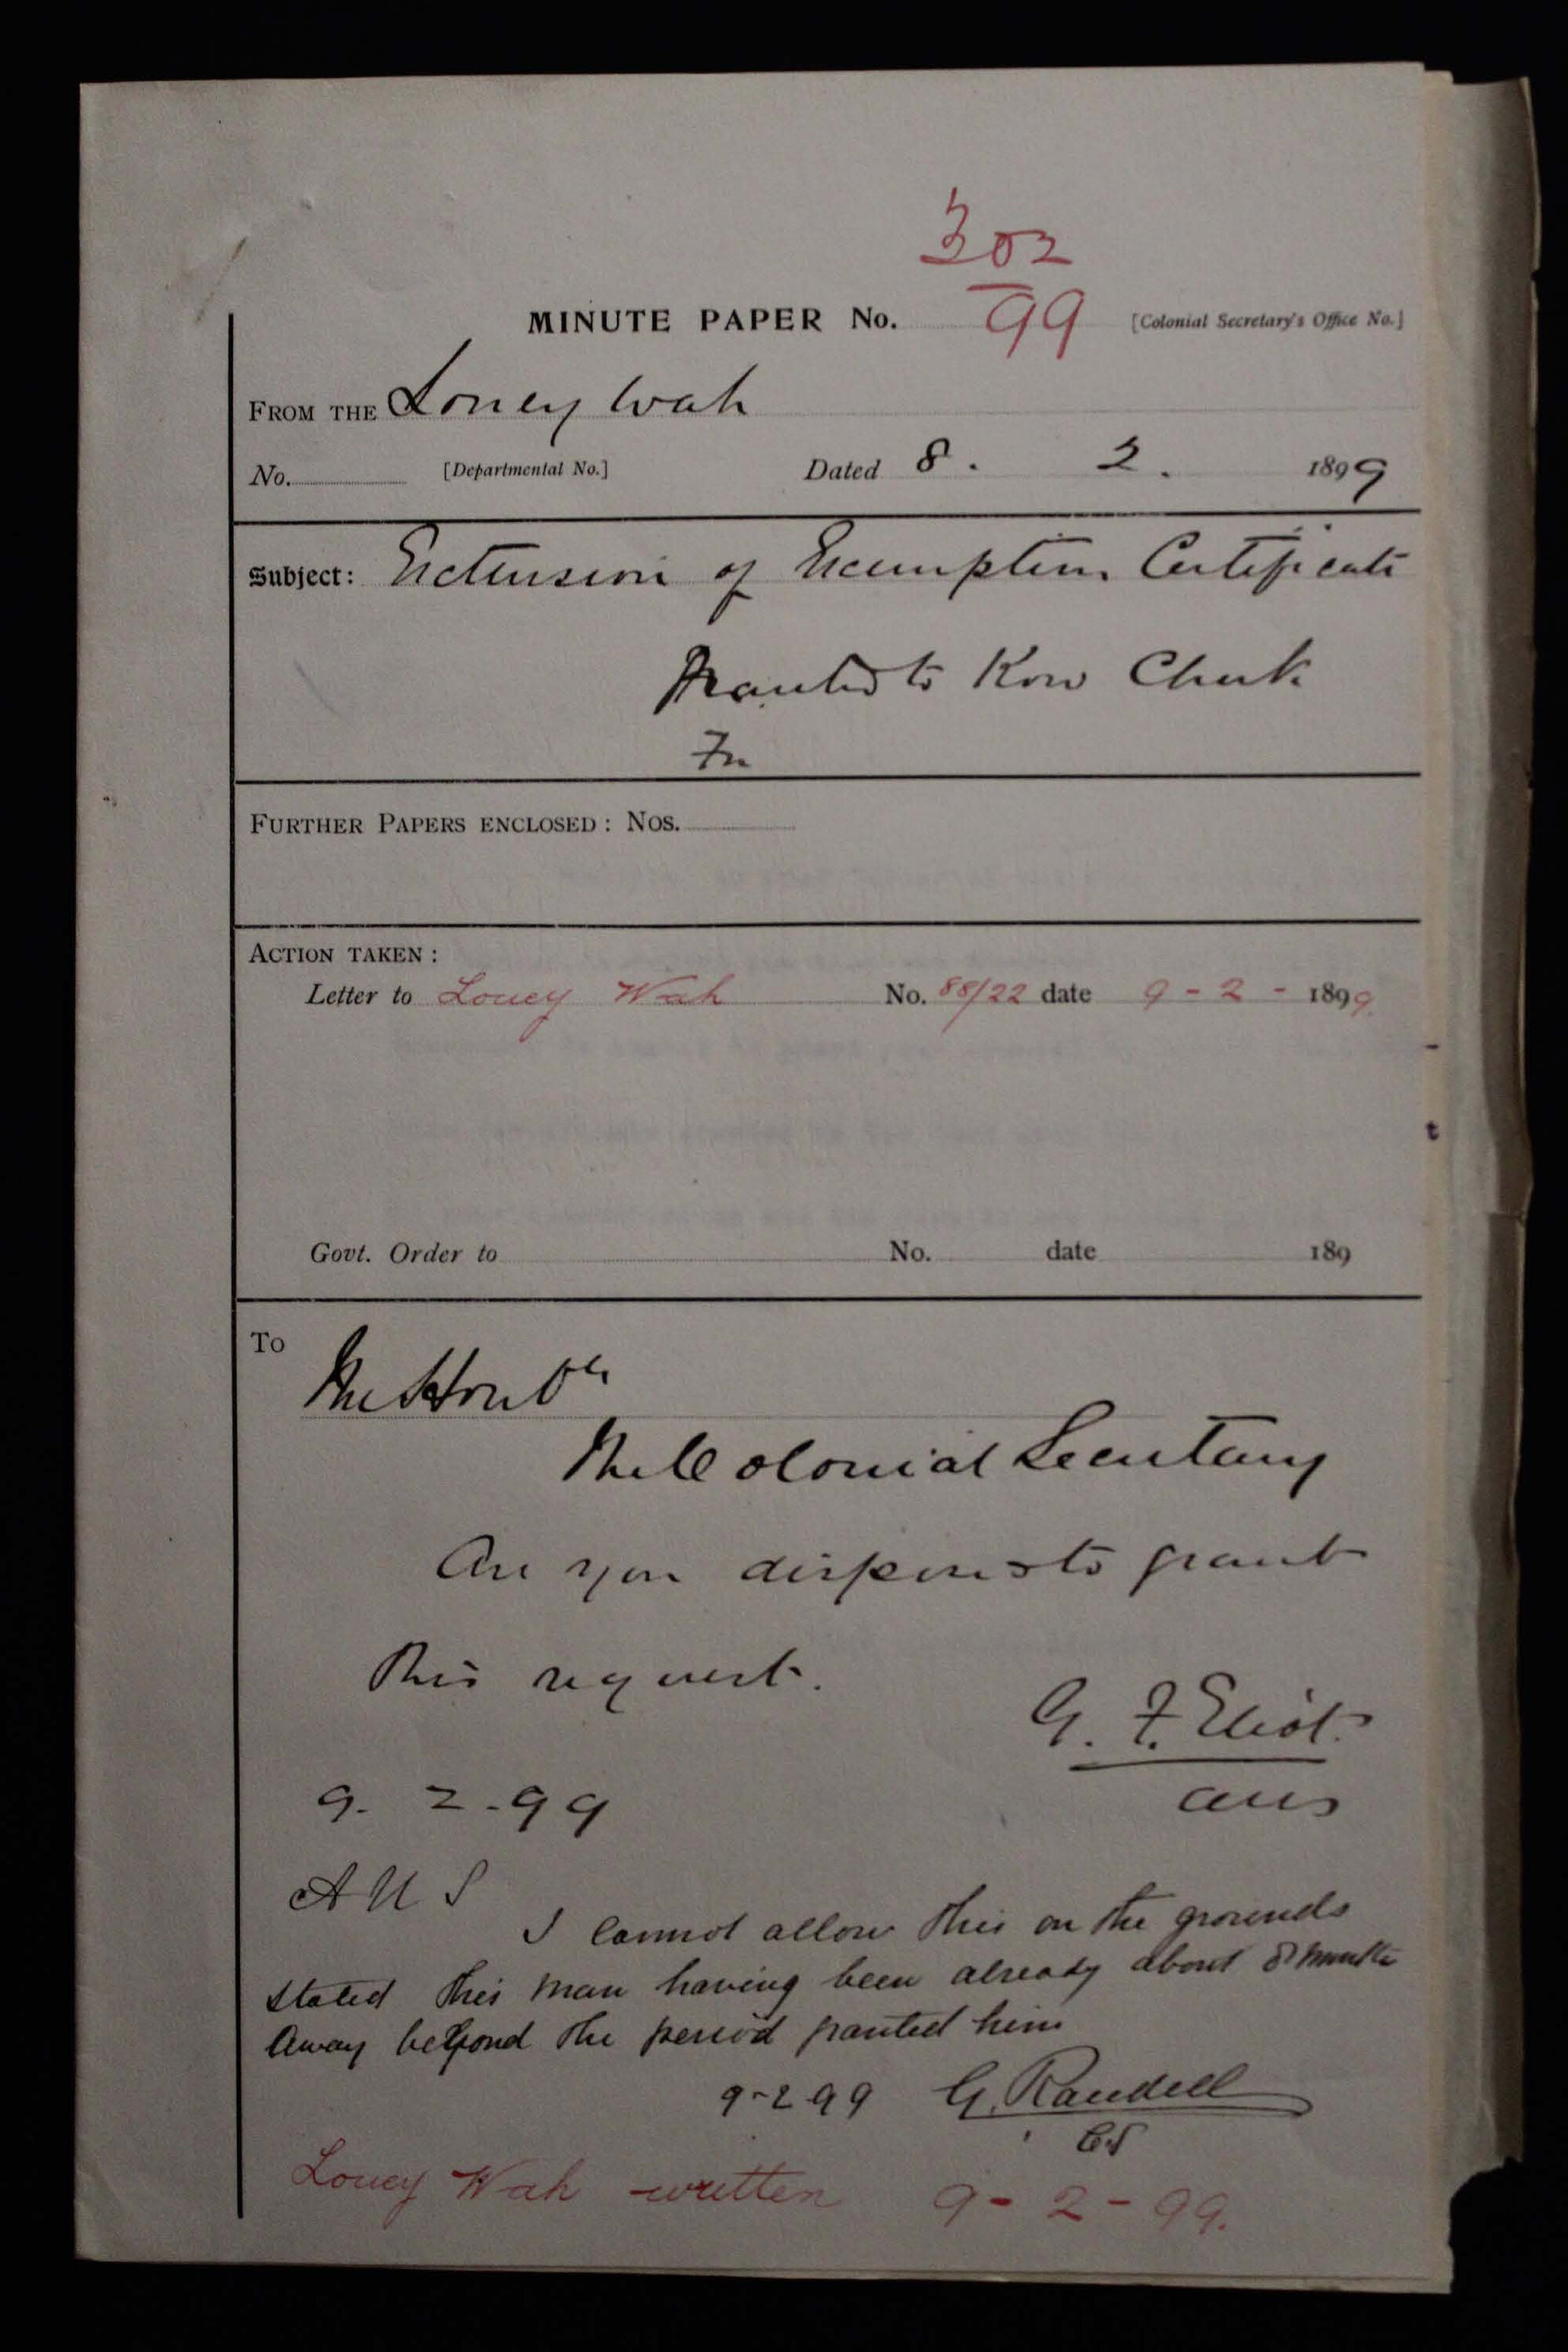 302
99
MINUTE PAPER No. [Colonial Secretary's Office No.]
FROM THE Loney Wah
No. [Departmental No.] Dated 8. 2. 1899
Subject: Extension of Exemption Certificate
Granted to Kow Cheek
For
FURTHER PAPERS ENCLOSED: NOS.
ACTION TAKEN:
Letter to Loney Wah No. 88/22 date 9-2-1899.
Govt. Order to No. date 189
To
The Honble
The Colonial Secretary
Are you disposed to grant
this request.
G. F. Eliot
aus
9. 2-99
A U S
I cannot allow this on the grounds
stated this man having been already about 8 months
away beyond the period granted him
9-2 99 G. Randell
CS
Loney Wah written 9-2-99.